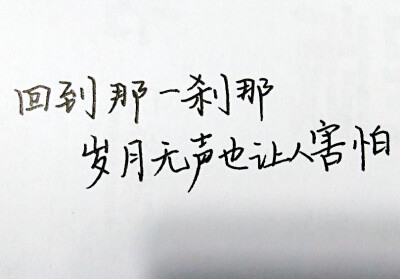 回到那一刹那
岁月无声也让人害怕